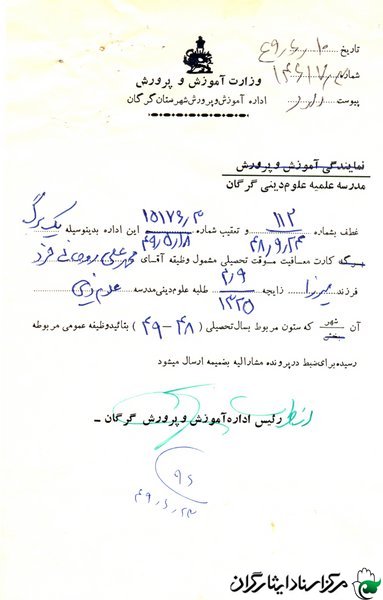 تاریخ ۱۰ر۶ر۴۹
شماره
پیوست دارد
وزارت آموزش و پرورش
اداره آموزش و پرورش شهرستان گرگان
نمایندگی آموزش و پرورش
مدرسه علمیه علوم دینی گرگان
عطف بشماره ۱۱۲ ۴۸٫۹٫۲۴ و تعقیب شماره ۱۵۱۷۶٫۳ ۴۹٫۵٫۱۸ این اداره بدینوسیله یک برگ
کارت معافیت موقت تحصیلی مشمول وظیفه آقای محمد علی روحانی فرد
فرزند میرزا زایچه ۴٫۹ ۱۳۲۵ طلبه علوم دینی مدرسه علوم دینی
آن شهر بخش که ستون مربوط بسال تحصیلی ( ۴۸-۴۹ ) بتائید وظیفه عمومی مربوطه
رسیده برای ضبط در پرونده مشارالیه بضمیمه ارسال میشود
رئیس اداره آموزش و پرورش گرگان -
۹۶
۴۹٫۶٫۲۳
مرکز اسناد ایثارگران